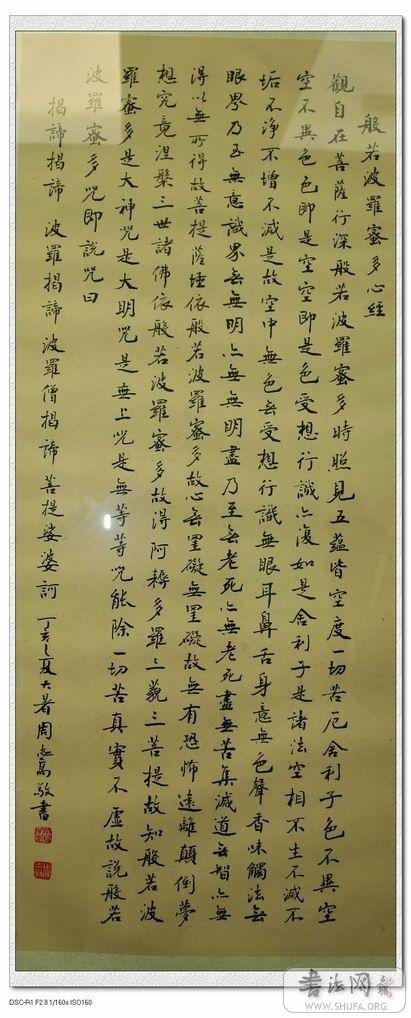 般若波羅蜜多心經
觀自在菩薩行深般若波羅蜜多時照見五蘊皆空度一切苦厄舍利子色不異空
空不異色色即是空空即是色受想行識亦復如是舍利子是諸法空相不生不滅不
垢不淨不增不減是故空中無色無受想行識無眼耳鼻舌身意無色聲香味觸法無
眼界乃至無意識界無無明亦無無明盡乃至無老死亦無老死盡無苦集滅道無智亦無
得以無所得故菩提薩埵依般若波羅蜜多故心無罣礙無罣礙故無有恐怖遠離顛倒夢
想究竟涅槃三世諸佛依般若波羅蜜多故得阿耨多羅三藐三菩提故知般若波
羅蜜多是大神咒是大明咒是無上咒是無等等咒能除一切苦真實不虛故說般若
波羅蜜多咒即說咒曰
揭諦揭諦 波羅揭諦 波羅僧揭諦 菩提娑婆訶 丁亥夏大暑周志高敬書
DSC-R1 F2.8 1/160s ISO160
书法网
WWW.SHUFA.ORG